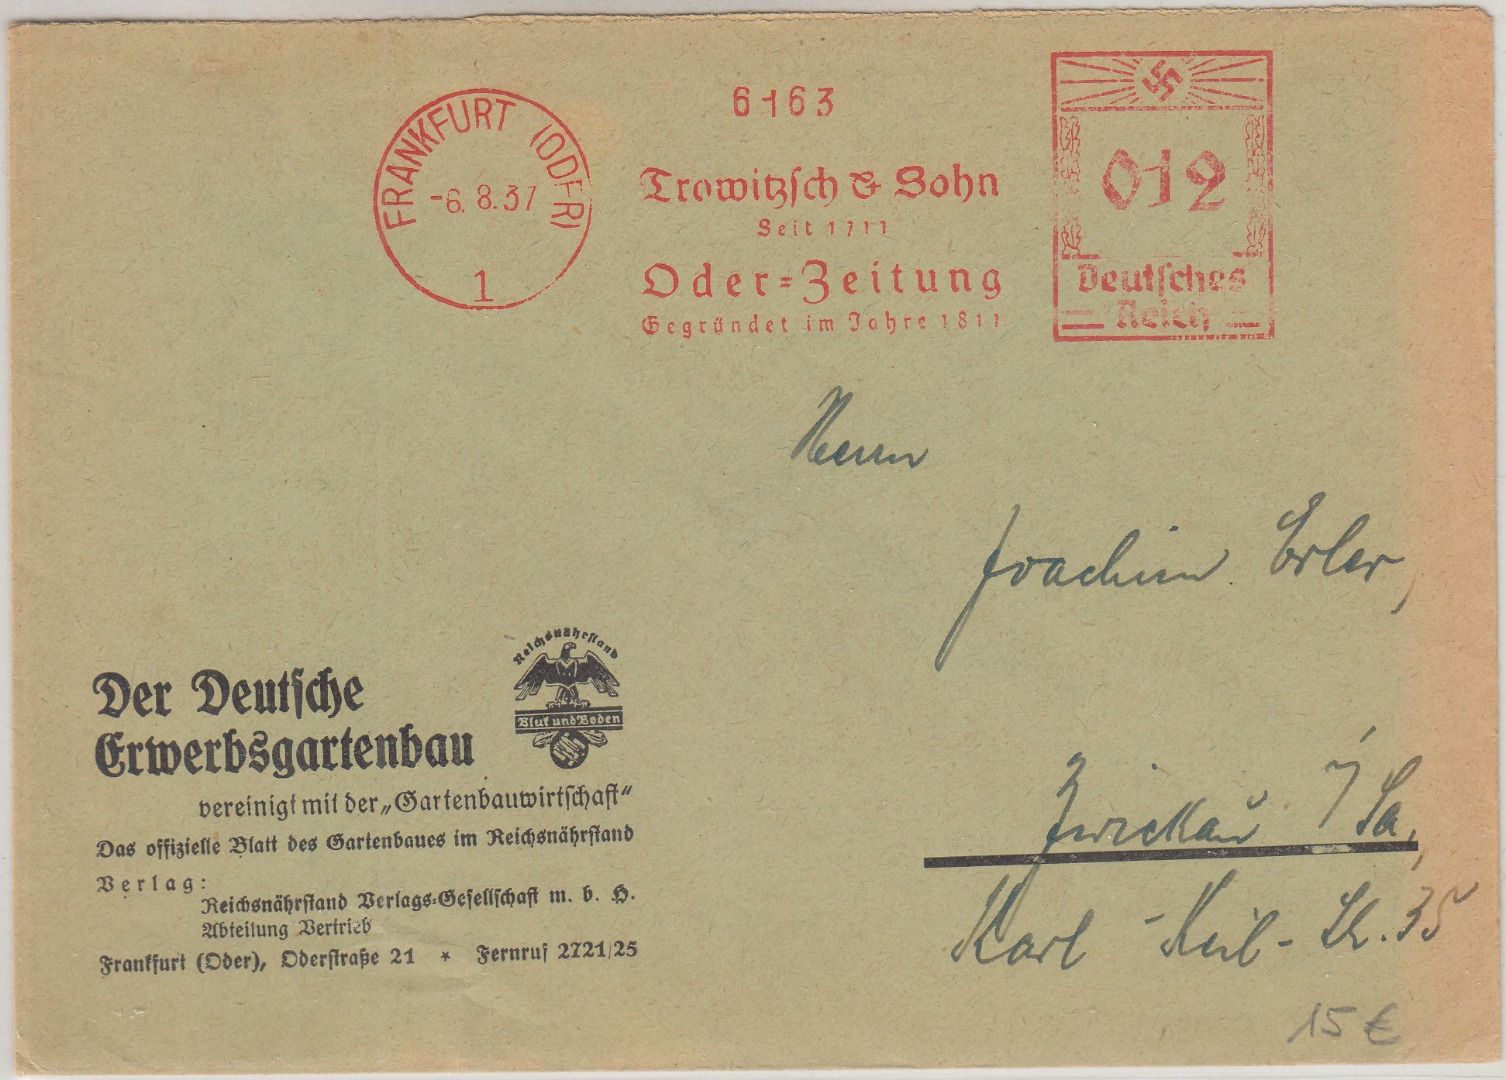 6163
FRANKFURT (ODER)
-6.8.37
1
Trowitzsch & Sohn
Seit 1711
Oder=Zeitung
Gegründet im Jahre 1811
012
Deutsches
Reich
Herrn
Joachim Erler,
Zwickau / Sa,
Karl-Keil-Str. 35
Reichsnährstand
Blut und Boden
Der Deutsche
Erwerbsgartenbau
vereinigt mit der „Gartenbauwirtschaft“
Das offizielle Blatt des Gartenbaues im Reichsnährstand
Verlag:
Reichsnährstand Verlags-Gesellschaft m. b. H.
Abteilung Vertrieb
Frankfurt (Oder), Oderstraße 21 * Fernruf 2721/25
15 €